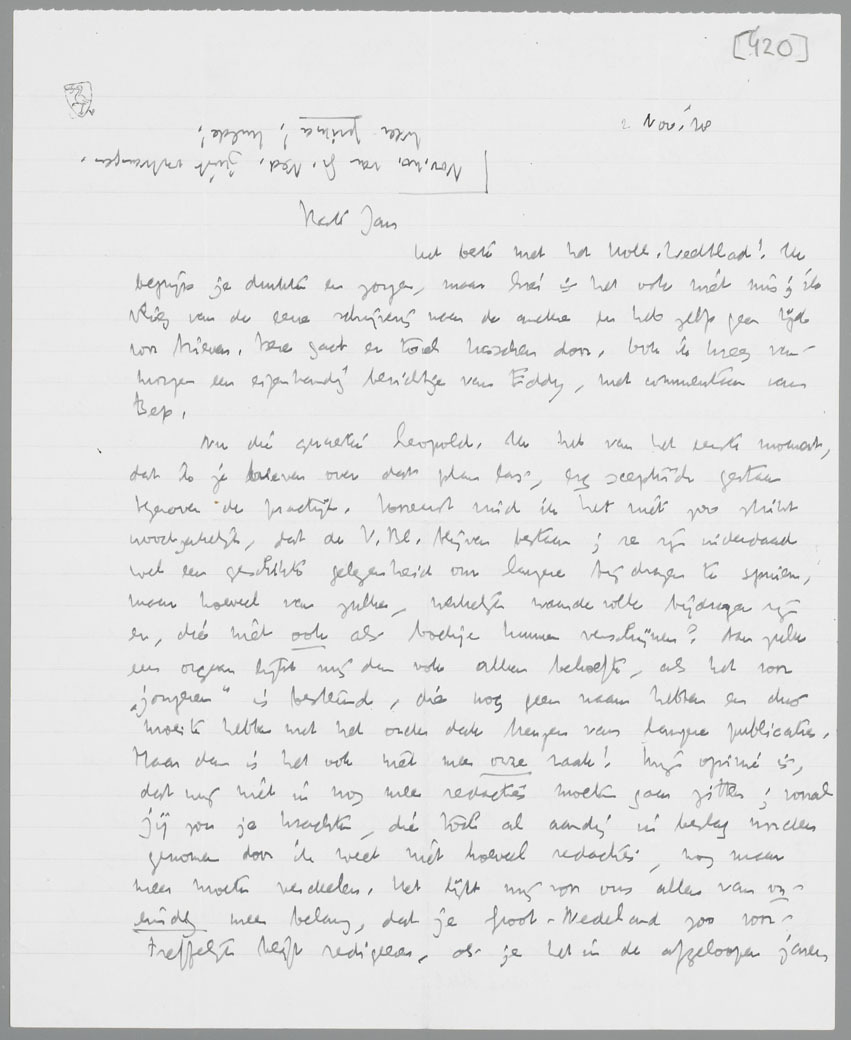 [420]
2 Nov. '38
Nov. no. van Gr. Ned. juist ontvangen.
Weer prima! hulde!
Beste Jan
het beste met het Holl. Weekblad! Ik
begrijp je drukte en zorgen, maar hier is het ook niet mis; ik
vlieg van de eene schrijverij naar de andere en heb zelfs geen tijd
voor brieven. kreeg van-
morgen een eigenhandig berichtje van Eddy, met commentaar van
Bep.
Nu die quaestie Leopold. Ik heb van het eerste moment,
dat ik je brieven over dat plan las, erg sceptisch gestaan
tegenover de practijk. vind ik het niet zoo strikt
noodzakelijk, dat de V. Bl. blijven bestaan; ze zijn inderdaad
wel een geschikte gelegenheid om langere bijdragen te spuien,
maar hoeveel van zulke, werkelijk waardevolle bijdragen zijn
er, die niet ook als boekje kunnen verschijnen? Aan zulk
een orgaan lijkt mij dan ook alleen behoefte, als het voor
"jongeren" is bestemd, die nog geen naam hebben en dus
moeite hebben met het onder dak brengen van langere publicaties.
Maar dan is het ook niet meer onze zaak! Mijn opinie is,
dat wij niet in nog meer redacties moeten gaan zitten; vooral
jij zou je krachten, die toch al aardig in beslag worden
genomen door ik weet niet hoeveel redacties, nog maar
meer moeten verdeelen. Het lijkt mij voor ons allen van on-
eindig meer belang, dat je Groot-Nederland zoo voor-
treffelijk blijft redigeeren, als je het in de afgeloopen jaren